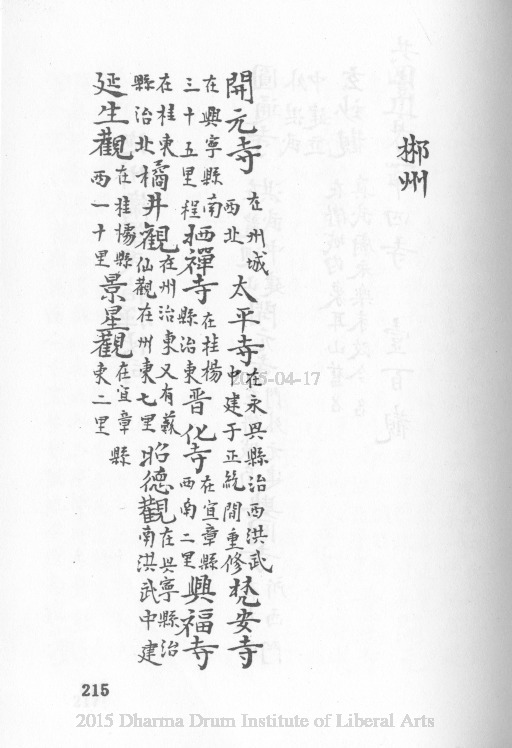 郴州
開元寺在州城西北太平寺在永兴縣治西洪武中建于正統間重修梵安寺
在興寧縣南三十五里程栖禪寺在桂楊縣治東晋化寺在宜章縣西南二里興福寺
在桂東縣治北橘井觀在州治東又有蘇仙觀在州東七里昭德觀在兴寧縣治南洪武中建
延生觀在桂楊縣西一十里景星觀在宜章縣東二里
215
2015-04-17
2015 Dharma Drum Institute of Liberal Arts